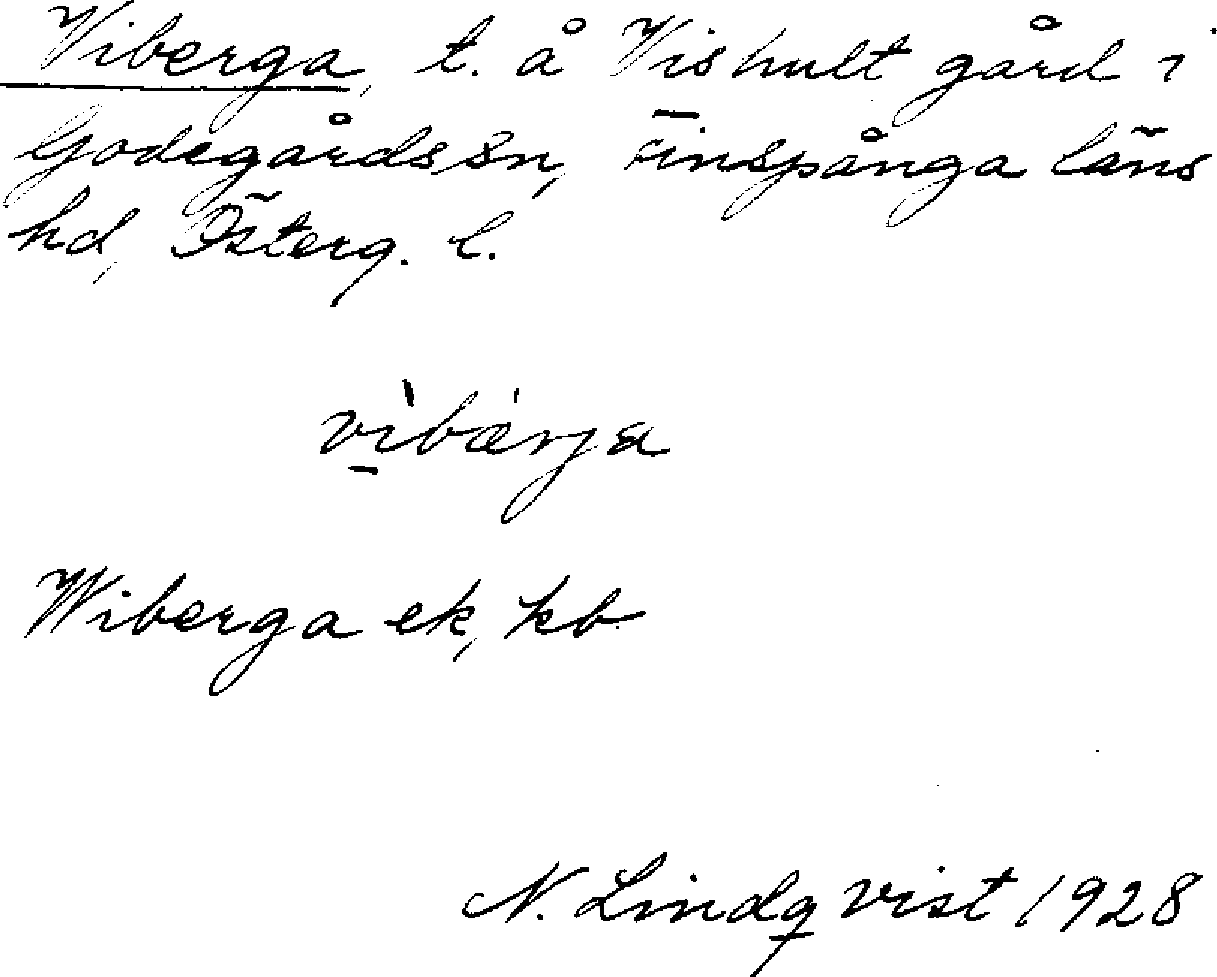 Viberga, t. å Vishult gård i
Godegårds sn, Finspånga läns
hd, Österg. l.
vìbárja
Wiberga ek, kb
N. Lindqvist 1928